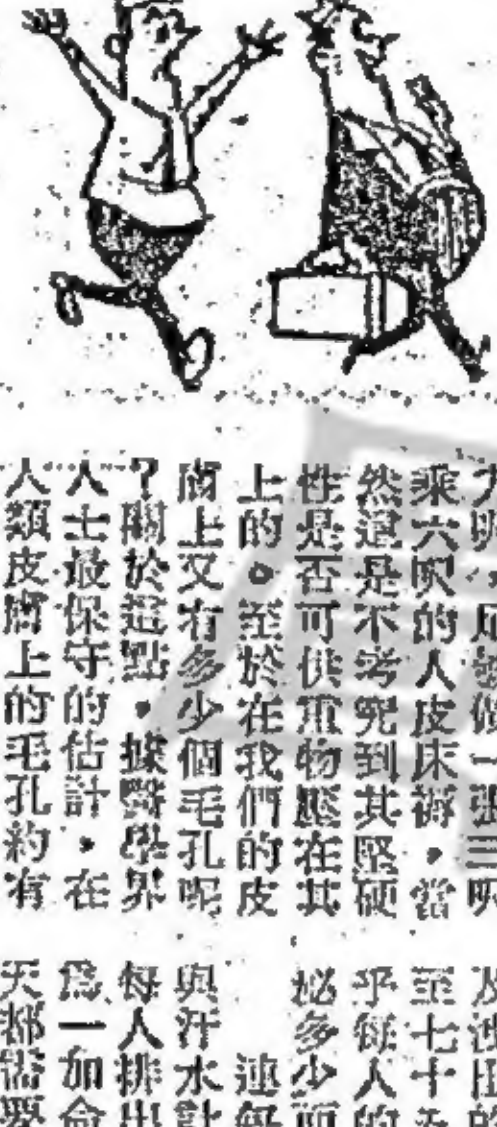 方呎，足够做一張三呎
乘六呎的人皮床褥，當
然這是不考究到其堅硬
性是否可供重物壓在其
上的。至於在我們的皮
膚上又有多少個毛孔呢
？關於這點，據醫學界
人士最保守的估計，在
人類皮膚上的毛孔約有
至七十五
乎每人的
泌多少
連每
與汗水計
每人排出
為一加侖
天都需要